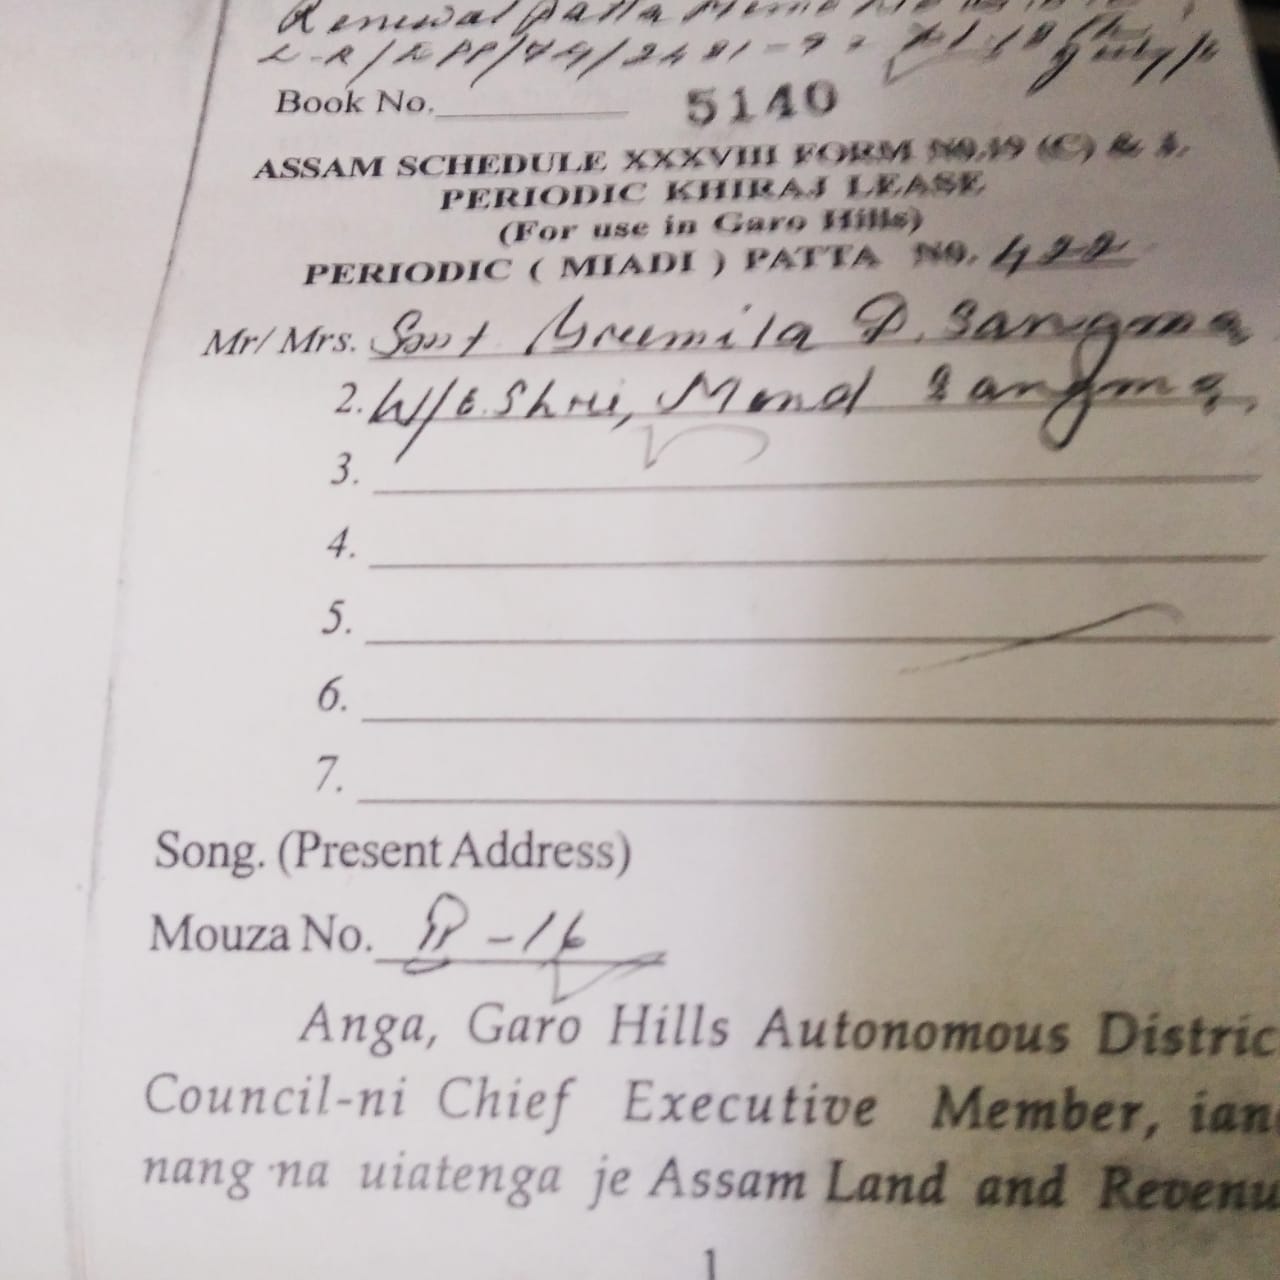 Renewal Patta Memo No
Book No. 5140
ASSAM SCHEDULE XXXVIII FORM NO.19 (C) &
PERIODIC KHIRAJ LEASE
(For use in Garo Hills)
PERIODIC ( MIADI ) PATTA NO. 422
Mr/ Mrs. Smt D. Sangma
2. W/o. Shri, Mond Sangma,
3.
4.
5.
6.
7.
Song. (Present Address)
Mouza No. - 16
Anga, Garo Hills Autonomous Distric
Council-ni Chief Executive Member, ian
nang·na uiatenga je Assam Land and Revenu
1